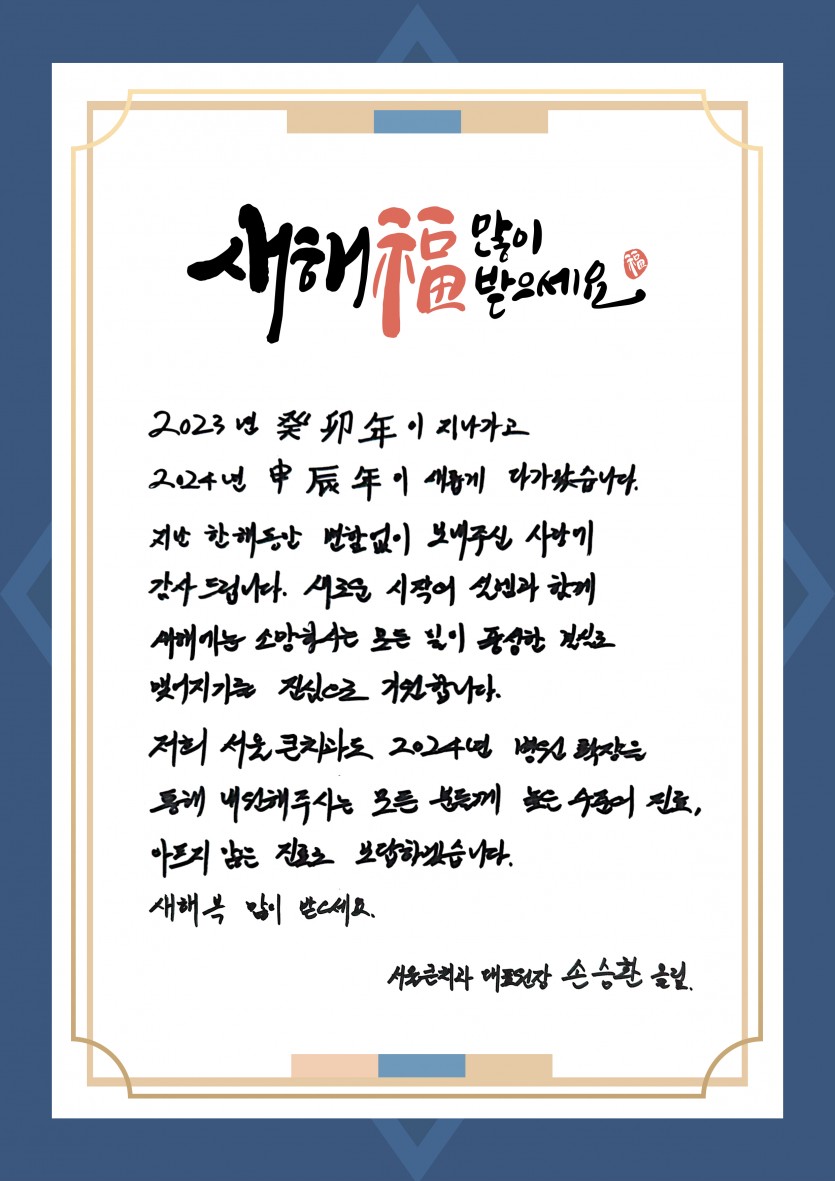 새해 福 많이 받으세요 福
2023년 癸卯年이 지나가고
2024년 甲辰年이 새롭게 다가왔습니다.
지난 한해동안 변함없이 보내주신 사랑에
감사드립니다. 새로운 시작의 설렘과 함께
새해에는 소망하시는 모든 일이 풍성한 결실로
맺어지기를 진심으로 기원합니다.
저희 서울큰치과도 2024년 병원 확장을
통해 내원해주시는 모든 분들께 높은 수준의 진료,
아프지 않은 진료로 보답하겠습니다.
새해 복 많이 받으세요.
서울큰치과 대표원장 손승환 올림.